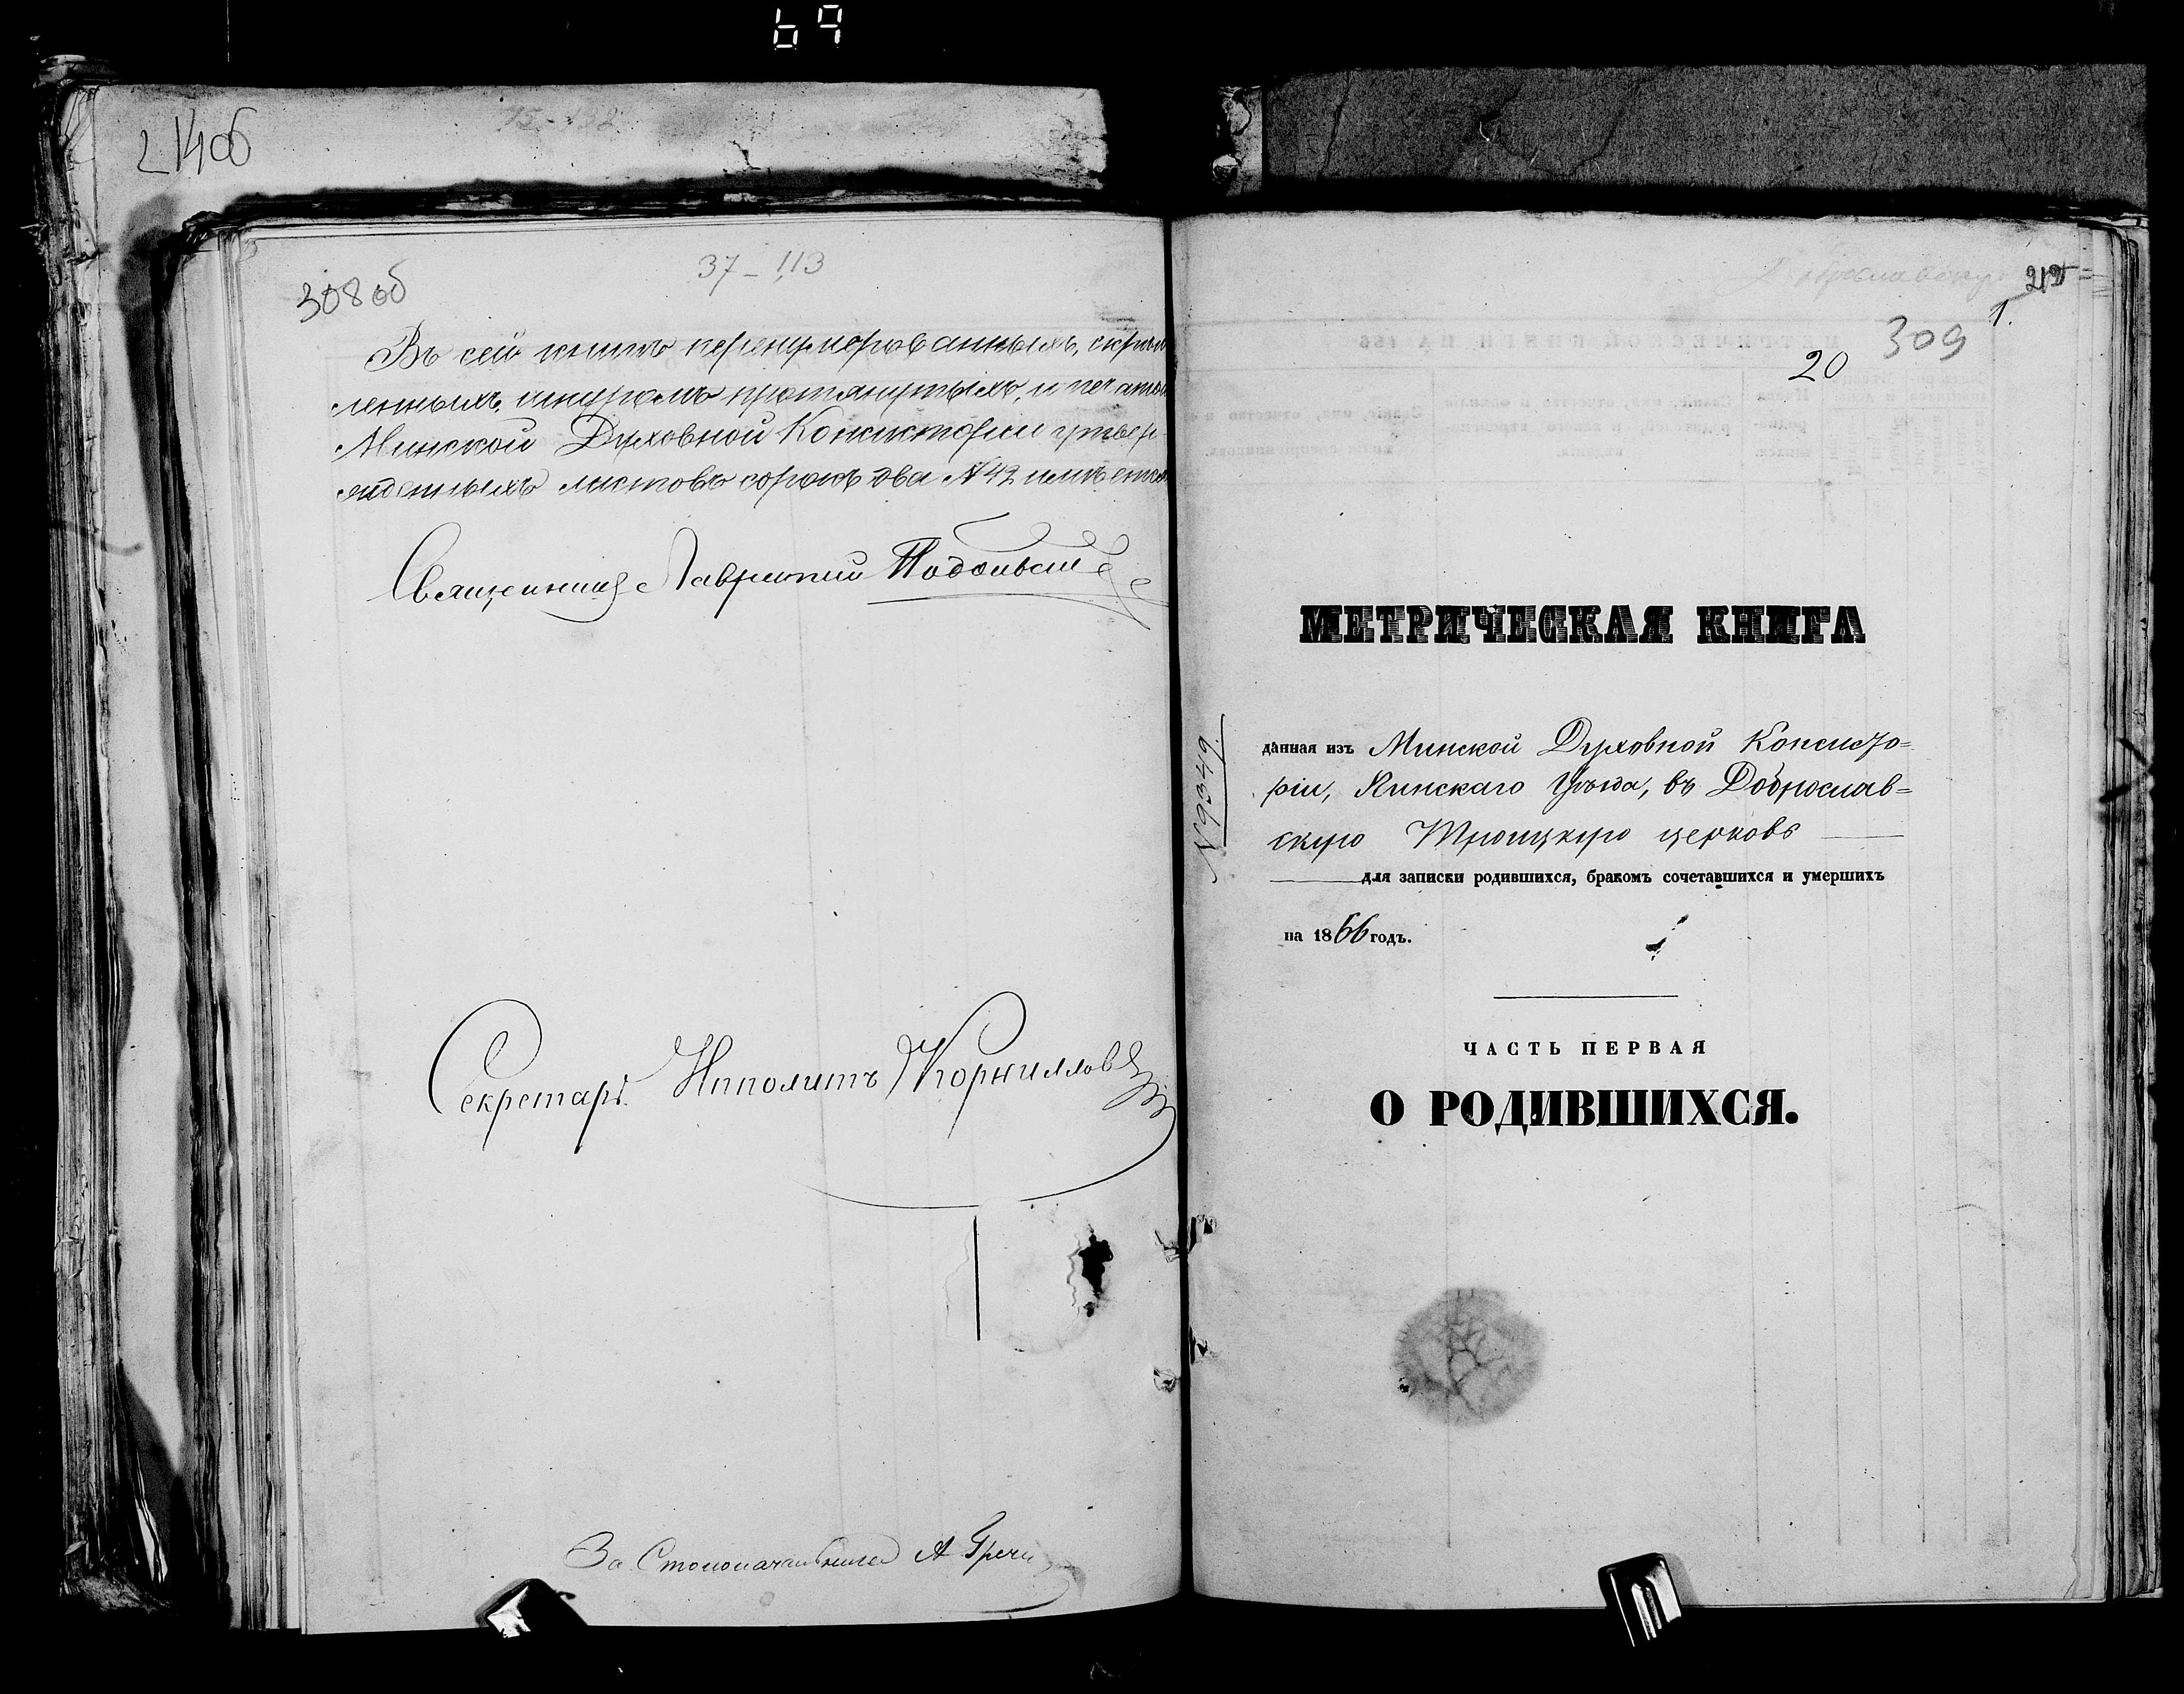 69
214об
75-132
37-113
308об
Въ сей книгѣ перенумерованныхъ, скрѣп
ленныхъ, шнуромъ протянутыхъ, и печатью
Минской Духовной Консисторіи утвер-
жденныхъ листовъ сорокъ два №42 имѣется
Священникъ Лаврентій
Секретарь Ипполитъ Корниловъ
За Столоначальника А Гречи
1.
309
20
МЕТРИЧЕСКАЯ КНИГА
№9349.
данная изъ Минской Духовной Консисто=
ріи, Пинскаго Уѣзда, въ Доброслав=
скую Троицкую церковь
для записки родившихся, бракомъ сочетавшихся и умершихъ
на 1866 годъ.
ЧАСТЬ ПЕРВАЯ
О РОДИВШИХСЯ.